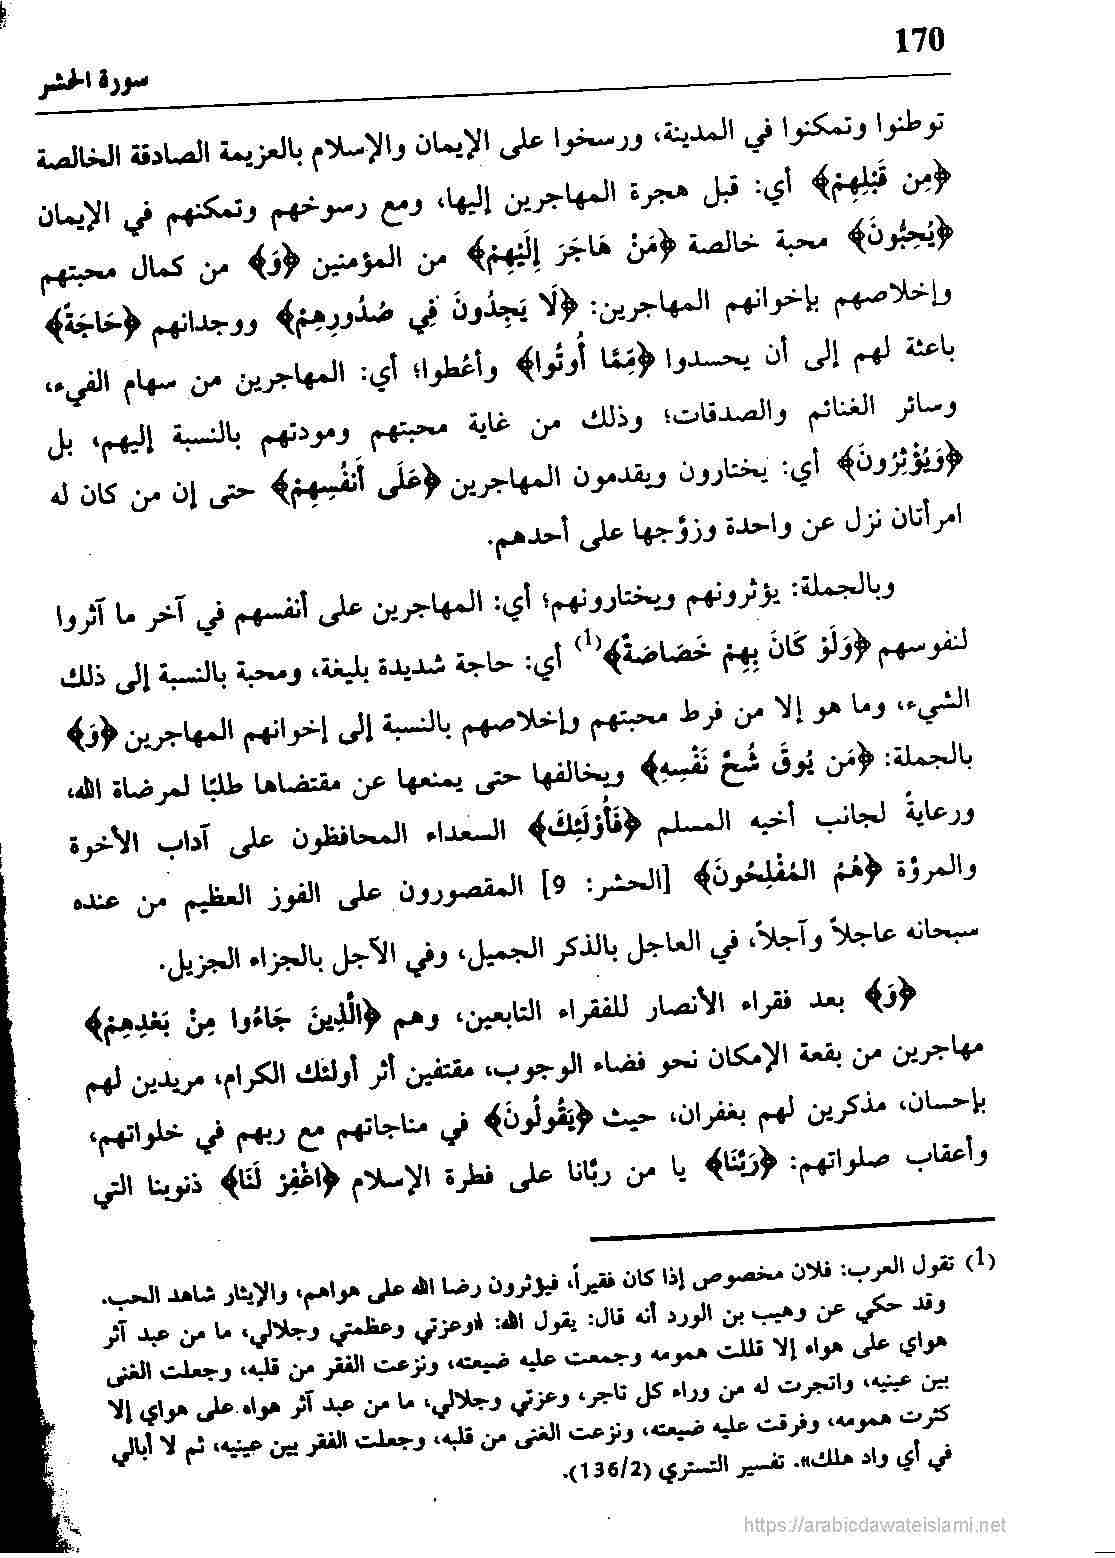 170
سورة الحشر
توطنوا وتمكنوا في المدينة، ورسخوا على الإيمان والإسلام بالعزيمة الصادقة الخالصة
﴿مِن قَبْلِهِمْ﴾ أي: قبل هجرة المهاجرين إليها، ومع رسوخهم وتمكنهم في الإيمان
﴿يُحِبُّونَ﴾ محبة خالصة ﴿مَنْ هَاجَرَ إِلَيْهِمْ﴾ من المؤمنين ﴿وَ﴾ من كمال محبتهم
وإخلاصهم بإخوانهم المهاجرين: ﴿لَا يَجِدُونَ فِي صُدُورِهِمْ﴾ ووجدانهم ﴿حَاجَةً﴾
باعثة لهم إلى أن يحسدوا ﴿مِّمَّا أُوتُوا﴾ وأُعطوا؛ أي: المهاجرين من سهام الفيء،
وسائر الغنائم والصدقات؛ وذلك من غاية محبتهم ومودتهم بالنسبة إليهم، بل
﴿وَيُؤْثِرُونَ﴾ أي: يختارون ويقدمون المهاجرين ﴿عَلَى أَنفُسِهِمْ﴾ حتى إن من كان له
امرأتان نزل عن واحدة وزوَّجها على أحدهم.
وبالجملة: يؤثرونهم ويختارونهم؛ أي: المهاجرين على أنفسهم في آخر ما آثروا
لنفوسهم ﴿وَلَوْ كَانَ بِهِمْ خَصَاصَةٌ﴾(1) أي: حاجة شديدة بليغة، ومحبة بالنسبة إلى ذلك
الشيء، وما هو إلا من فرط محبتهم وإخلاصهم بالنسبة إلى إخوانهم المهاجرين ﴿وَ﴾
بالجملة: ﴿مَن يُوقَ شُحَّ نَفْسِهِ﴾ ويخالفها حتى يمنعها عن مقتضاها طلبًا لمرضاة الله،
ورعايةً لجانب أخيه المسلم ﴿فَأُوْلَئِكَ﴾ السعداء المحافظون على آداب الأخوة
والمروَّة ﴿هُمُ المُفْلِحُونَ﴾ [الحشر: 9] المقصورون على الفوز العظيم من عنده
سبحانه عاجلاً وآجلاً، في العاجل بالذكر الجميل، وفي الآجل بالجزاء الجزيل.
﴿وَ﴾ بعد فقراء الأنصار للفقراء التابعين، وهم ﴿الَّذِينَ جَاءُوا مِنْ بَعْدِهِمْ﴾
مهاجرين من بقعة الإمكان نحو فضاء الوجوب، مقتفين أثر أولئك الكرام، مريدين لهم
بإحسان، مذكرين لهم بغفران، حيث ﴿يَقُولُونَ﴾ في مناجاتهم مع ربهم في خلواتهم،
وأعقاب صلواتهم: ﴿رَبَّنَا﴾ يا من ربَّانا على فطرة الإسلام ﴿اغْفِرْ لَنَا﴾ ذنوبنا التي
(1) تقول العرب: فلان مخصوص إذا كان فقيراً، فيؤثرون رضا الله على هواهم، والإيثار شاهد الحب.
وقد حكي عن وهيب بن الورد أنه قال: يقول الله: «وعزتي وعظمتي وجلالي، ما من عبد آثر
هواي على هواه إلا قللت همومه وجمعت عليه ضيعته، ونزعت الفقر من قلبه، وجعلت الغنى
بين عينيه، واتجرت له من وراء كل تاجر، وعزتي وجلالي، ما من عبد آثر هواه على هواي إلا
كثرت همومه، وفرقت عليه ضيعته، ونزعت الغنى من قلبه، وجعلت الفقر بين عينيه، ثم لا أبالي
في أي واد هلك». تفسير التستري (136/2).
https://arabicdawateislami.net